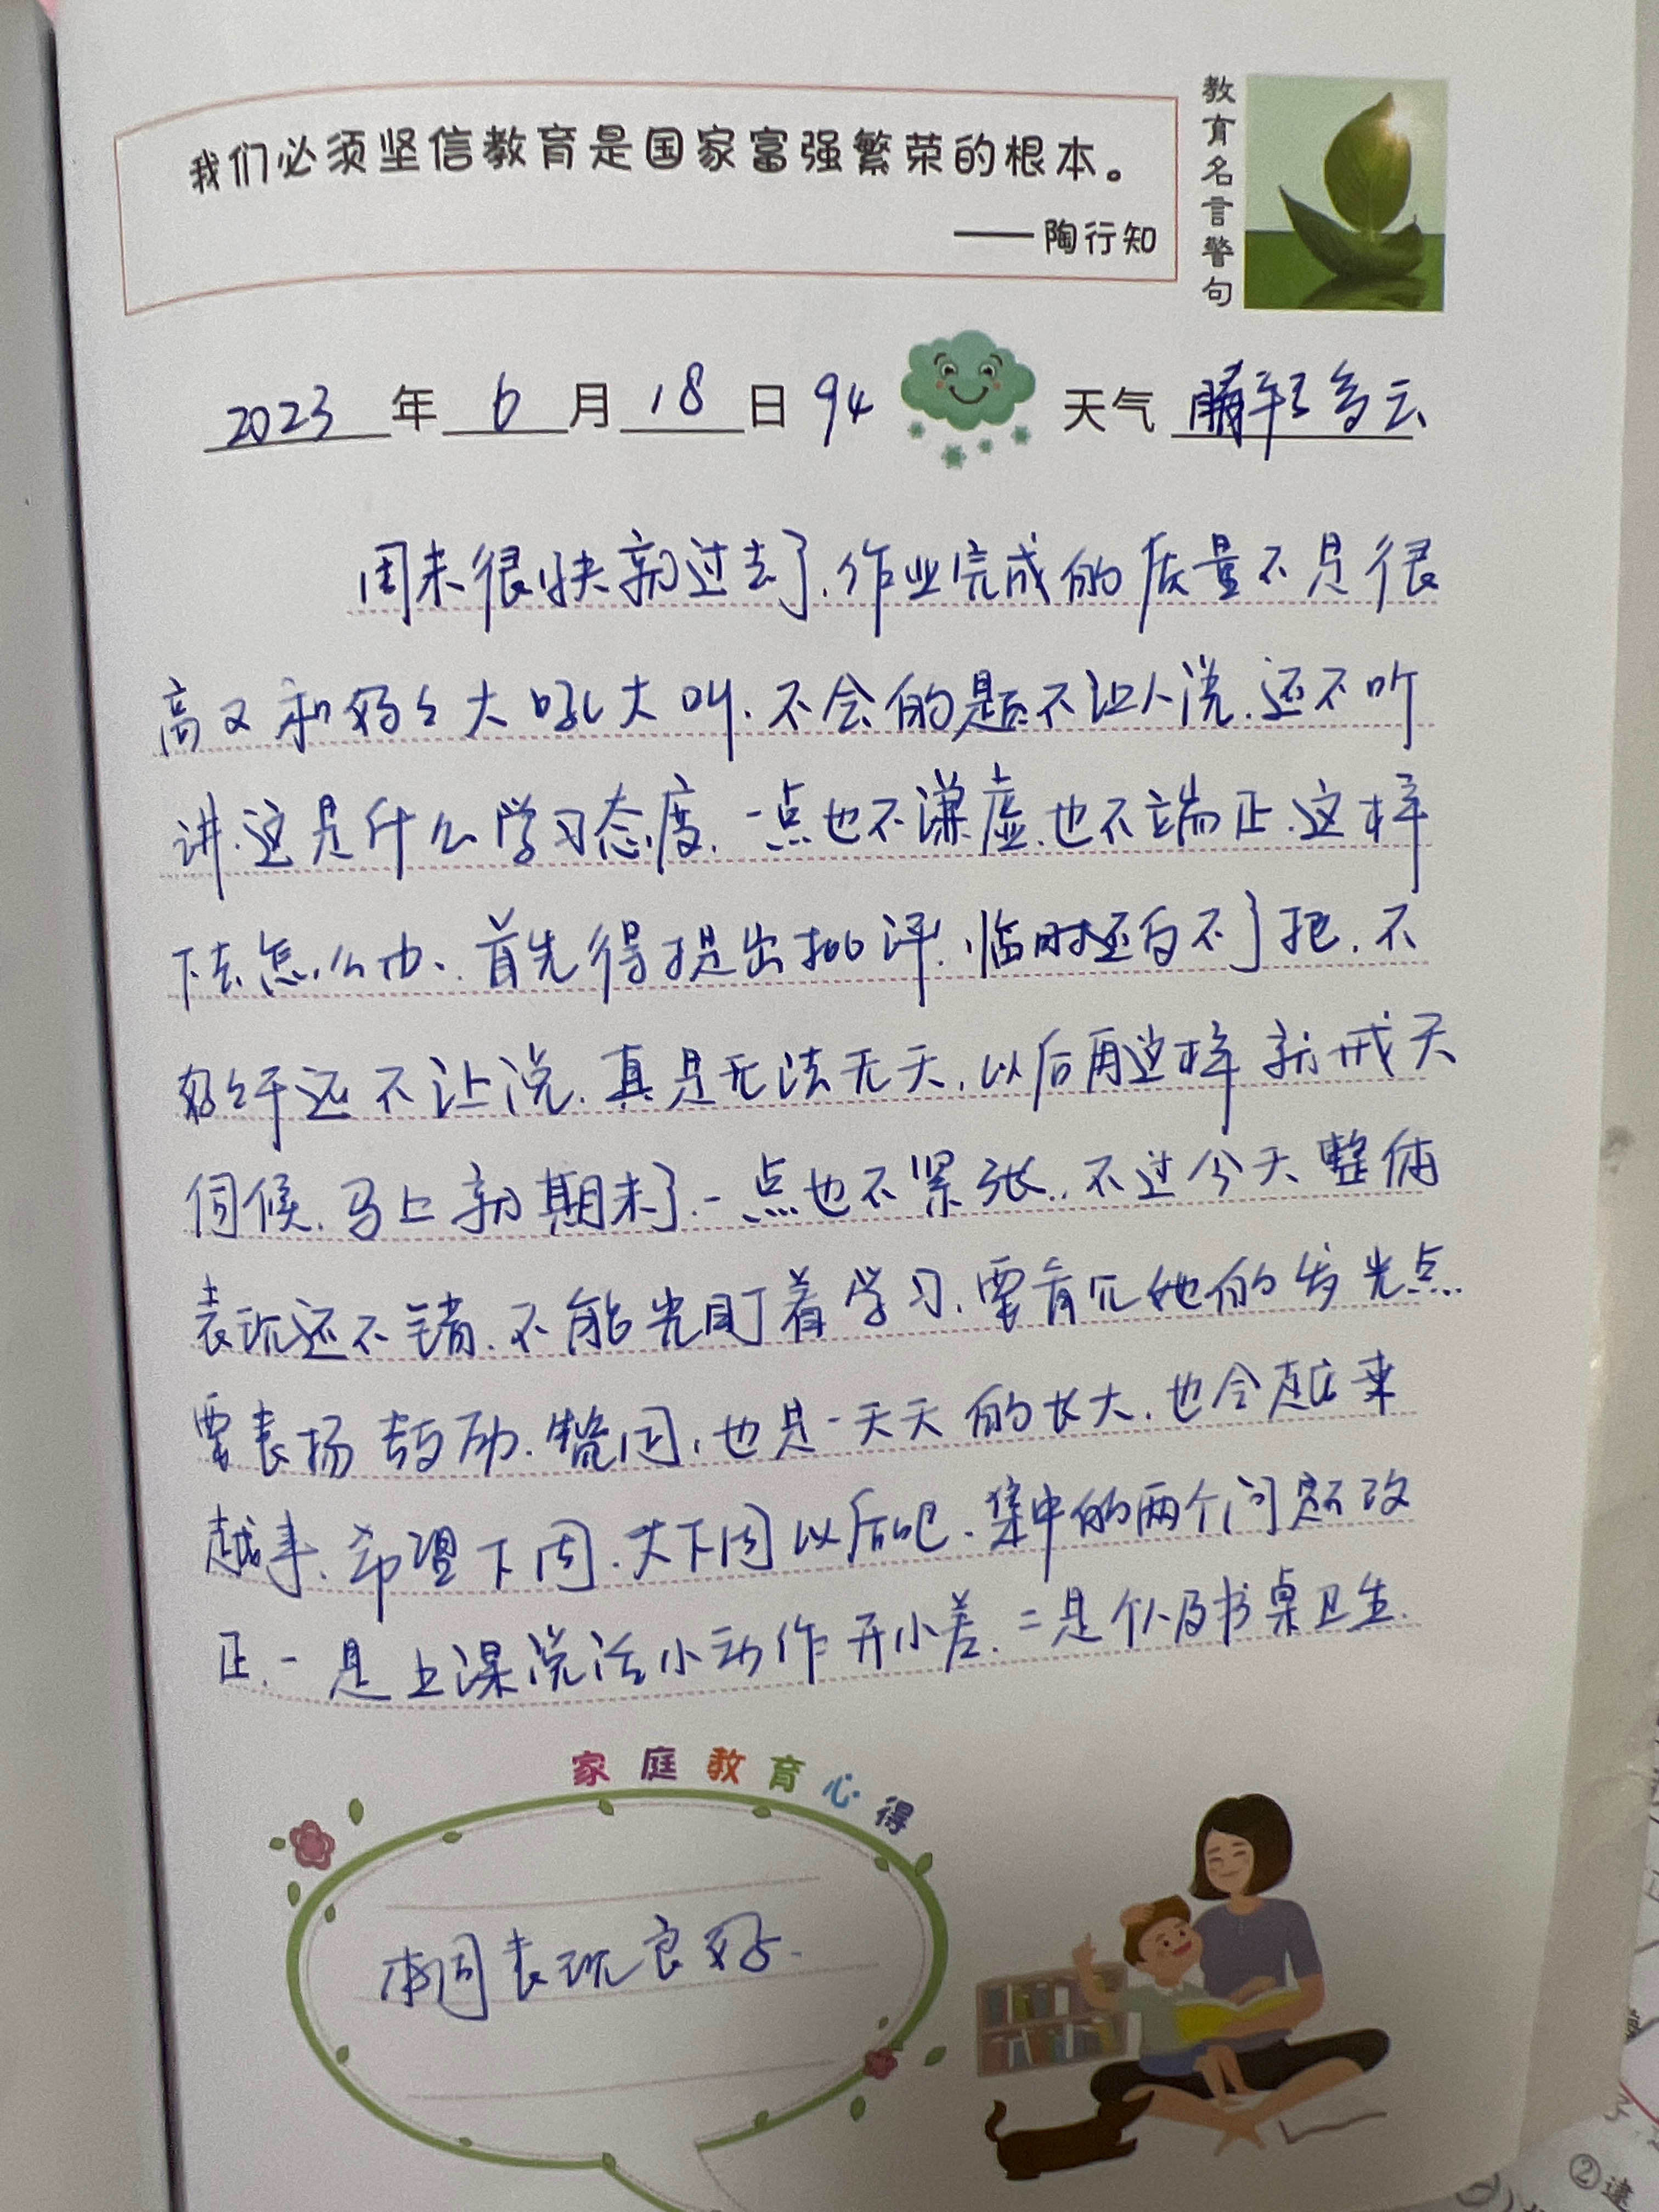 我们必须坚信教育是国家富强繁荣的根本。
——陶行知
教育名言警句
2023年6月18日 94 天气 晴转多云
周末很快就过去了.作业完成的质量不是很
高又和妈妈大吼大叫.不会的题不让人说.还不听
讲.这是什么学习态度.一点也不谦虚.也不端正.这样
下去怎么办、首先得提出批评.临时还自不了把.不
好好干还不让说.真是无法无天.以后再这样就戒天
伺候.马上就期末了.一点也不紧张.不过今天整体
表现还不错.不能光盯着学习.要看见她的发光点.
要表扬鼓励.整周,也是一天天的长大.也会越来
越来.希望下周.大下周以后吧.集中的两个问题改
正.一是上课说话小动作开小差.二是个人及书桌卫生.
家庭教育心得
本周表现良好.
②逮